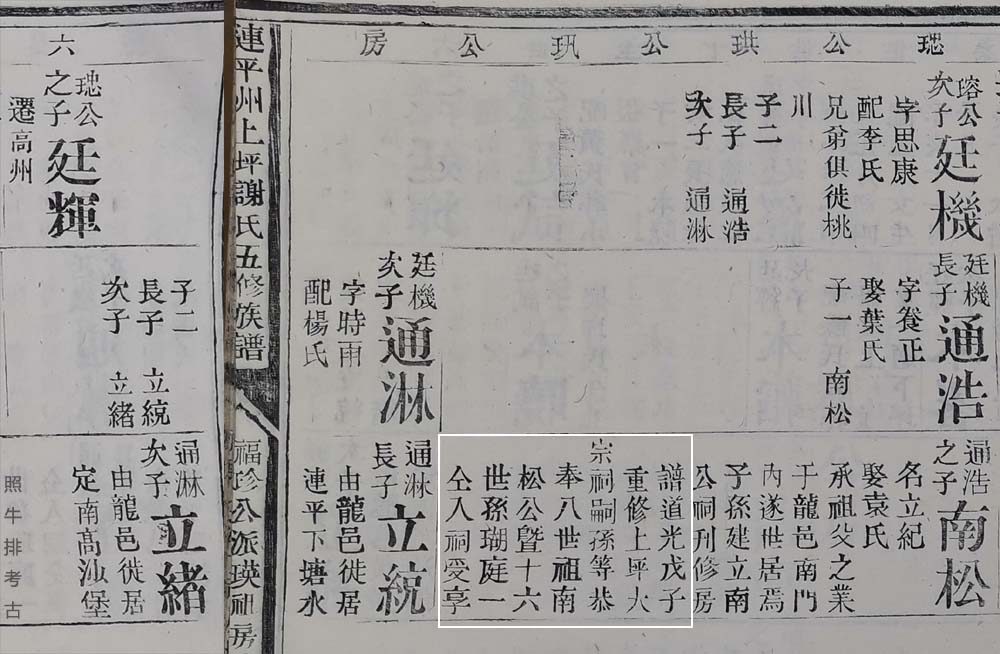 公珙公公房
瑢公次子
廷機
字思康
配李氏
兄弟俱徙桃
川
子二
長子 通浩
次子 通淋
廷機長子
通浩
字養正
娶葉氏
子一 南松
廷機次子
通淋
字時雨
配楊氏
通浩之子
南松
名立紀
娶袁氏
承祖父之業
于龍邑南門
內遂世居焉
子孫建立南
公祠刊修房
譜道光戊子
重修上坪大
宗祠嗣孫等恭
奉八世祖南
松公暨十六
世孫瑚庭一
仝入祠受享
通淋長子
立統
由龍邑徙居
連平下塘水
連平州上坪謝氏五修族譜
福珍公派瑛祖房
六
公之子
廷輝
遷高州
子二
長子 立統
次子 立緒
通淋次子
立緒
由龍邑徙居
定南高汕堡
照牛排考古